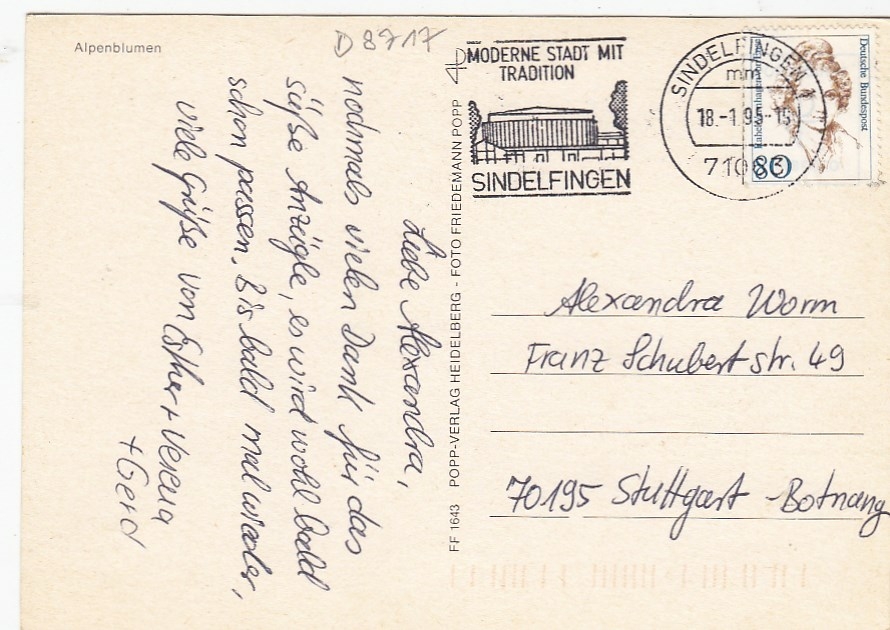 Alpenblumen
D 8717
MODERNE STADT MIT
TRADITION
SINDELFINGEN
SINDELFINGEN 1
mm
18.-1.95.-15
71063
Deutsche Bundespost
80
Liebe Alexandra,
nochmals vielen Dank für das
süße Anzügle, es wird wohl bald
schon passen. Bis bald mal wieder,
viele Grüße von Esther + Verena
+ Gerd
FF 1643 POPP-VERLAG HEIDELBERG - FOTO FRIEDEMANN POPP
Alexandra Worm
Franz Schubertstr. 49
70195 Stuttgart - Botnang